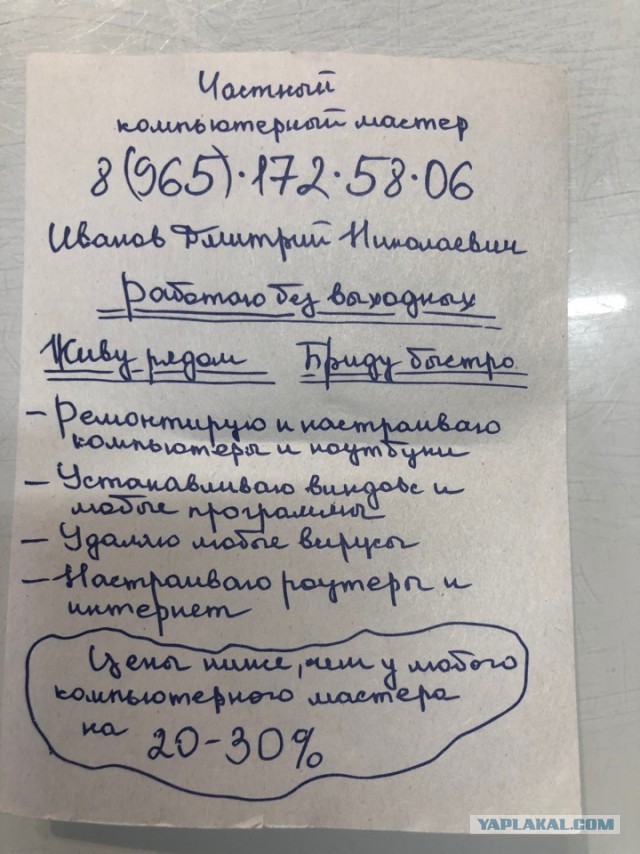 Частный
компьютерный мастер
8(965)·172·58·06
Иванов Дмитрий Николаевич
Работаю без выходных
Живу рядом Приду быстро
- Ремонтирую и настраиваю
компьютеры и ноутбуки
- Устанавливаю виндовс и
любые программы
- Удаляю любые вирусы
- Настраиваю роутеры и
интернет
Цены ниже, чем у любого
компьютерного мастера
на 20-30%
YAPLAKAL.COM